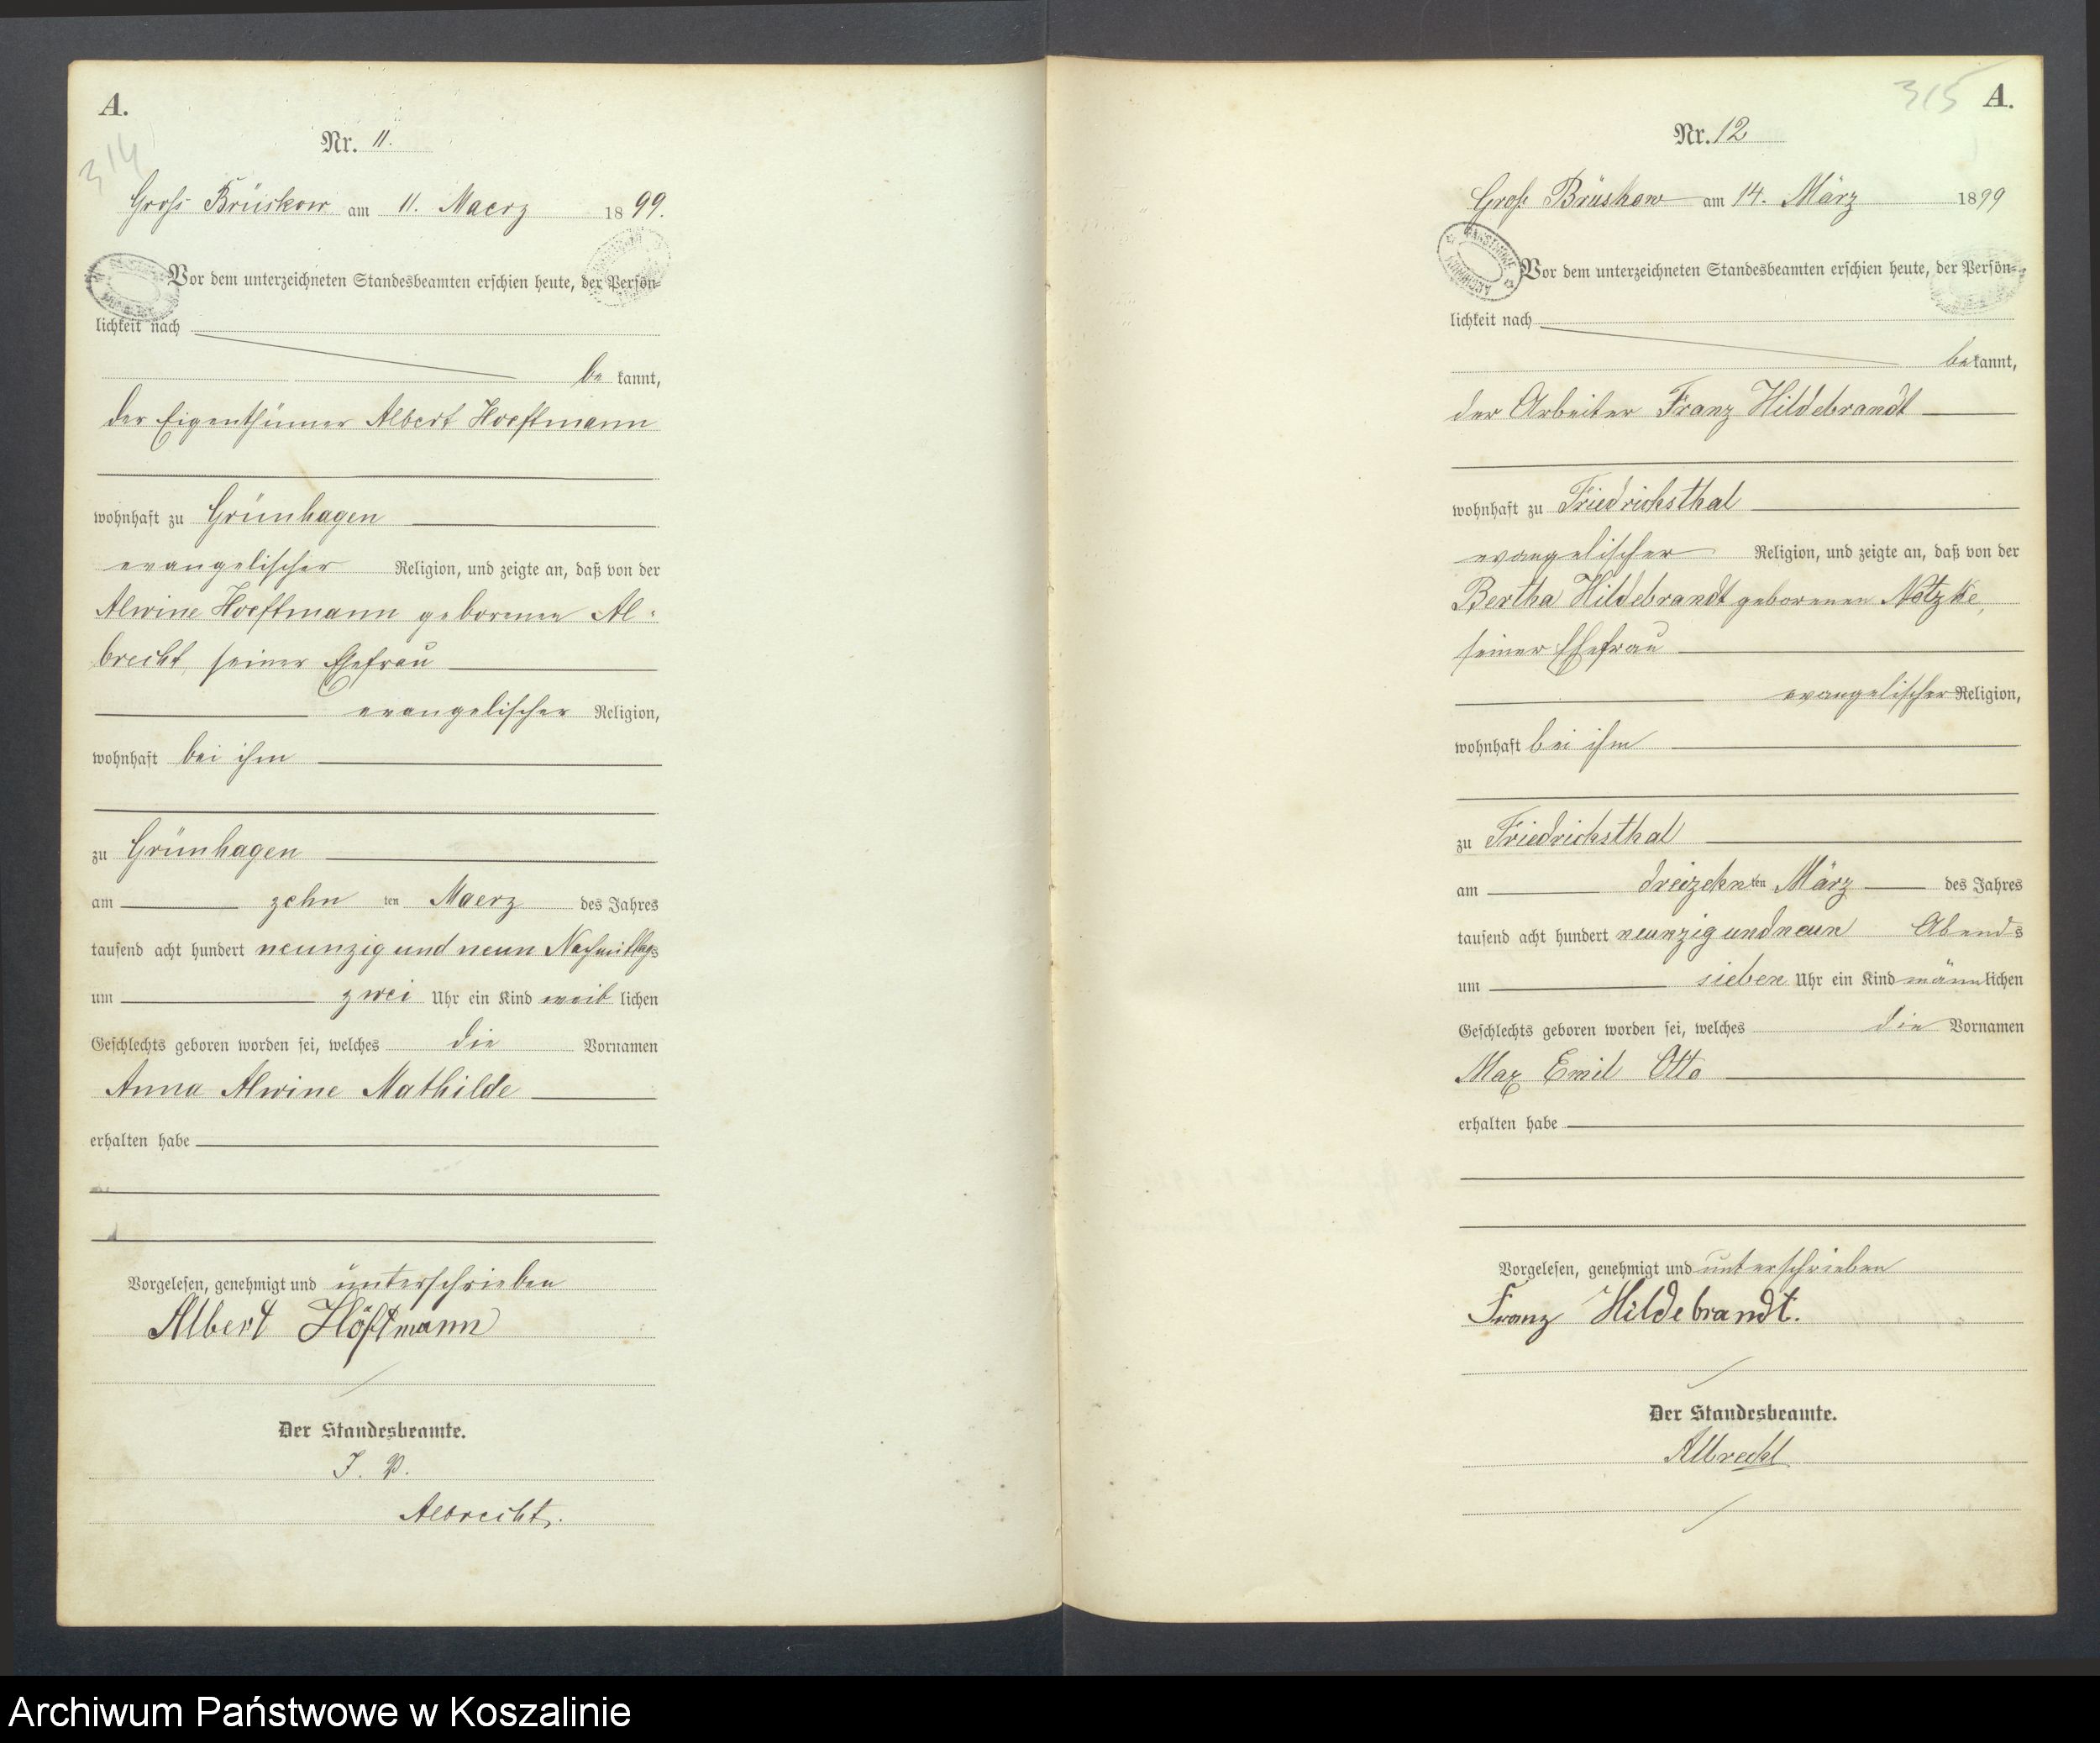 A.
314
Nr. 11.
Gross Brüskow am 11. Maerz 1899.
Vor dem unterzeichneten Standesbeamten erschien heute, der Persön-
lichkeit nach
be kannt,
der Eigenthümer Albert Hoeftmann
wohnhaft zu Grünhagen
evangelischer Religion, und zeigte an, daß von der
Alwine Hoeftmann geborenen Al-
brecht, seiner Ehefrau
evangelischer Religion,
wohnhaft bei ihm
zu Grünhagen
am zehn ten Maerz des Jahres
tausend acht hundert neunzig und neun Nachmittags
um zwei Uhr ein Kind weib lichen
Geschlechts geboren worden sei, welches die Vornamen
Anna Alwine Mathilde
erhalten habe
Vorgelesen, genehmigt und unterschrieben
Albert Höftmann
Der Standesbeamte.
J. V.
Albrecht.
315 A.
Nr. 12
Groß Brüskow am 14. März 1899
Vor dem unterzeichneten Standesbeamten erschien heute, der Persön-
lichkeit nach
bekannt,
der Arbeiter Franz Hildebrandt
wohnhaft zu Friedrichsthal
evangelischer Religion, und zeigte an, daß von der
Bertha Hildebrandt geborenen Notzke,
seiner Ehefrau
evangelischer Religion,
wohnhaft bei ihm
zu Friedrichsthal
am dreizehnten März des Jahres
tausend acht hundert neunzig und neun Abends
um sieben Uhr ein Kind männlichen
Geschlechts geboren worden sei, welches die Vornamen
Max Emil Otto
erhalten habe
Vorgelesen, genehmigt und unterschrieben
Franz Hildebrandt.
Der Standesbeamte.
Albrecht
Archiwum Państwowe w Koszalinie